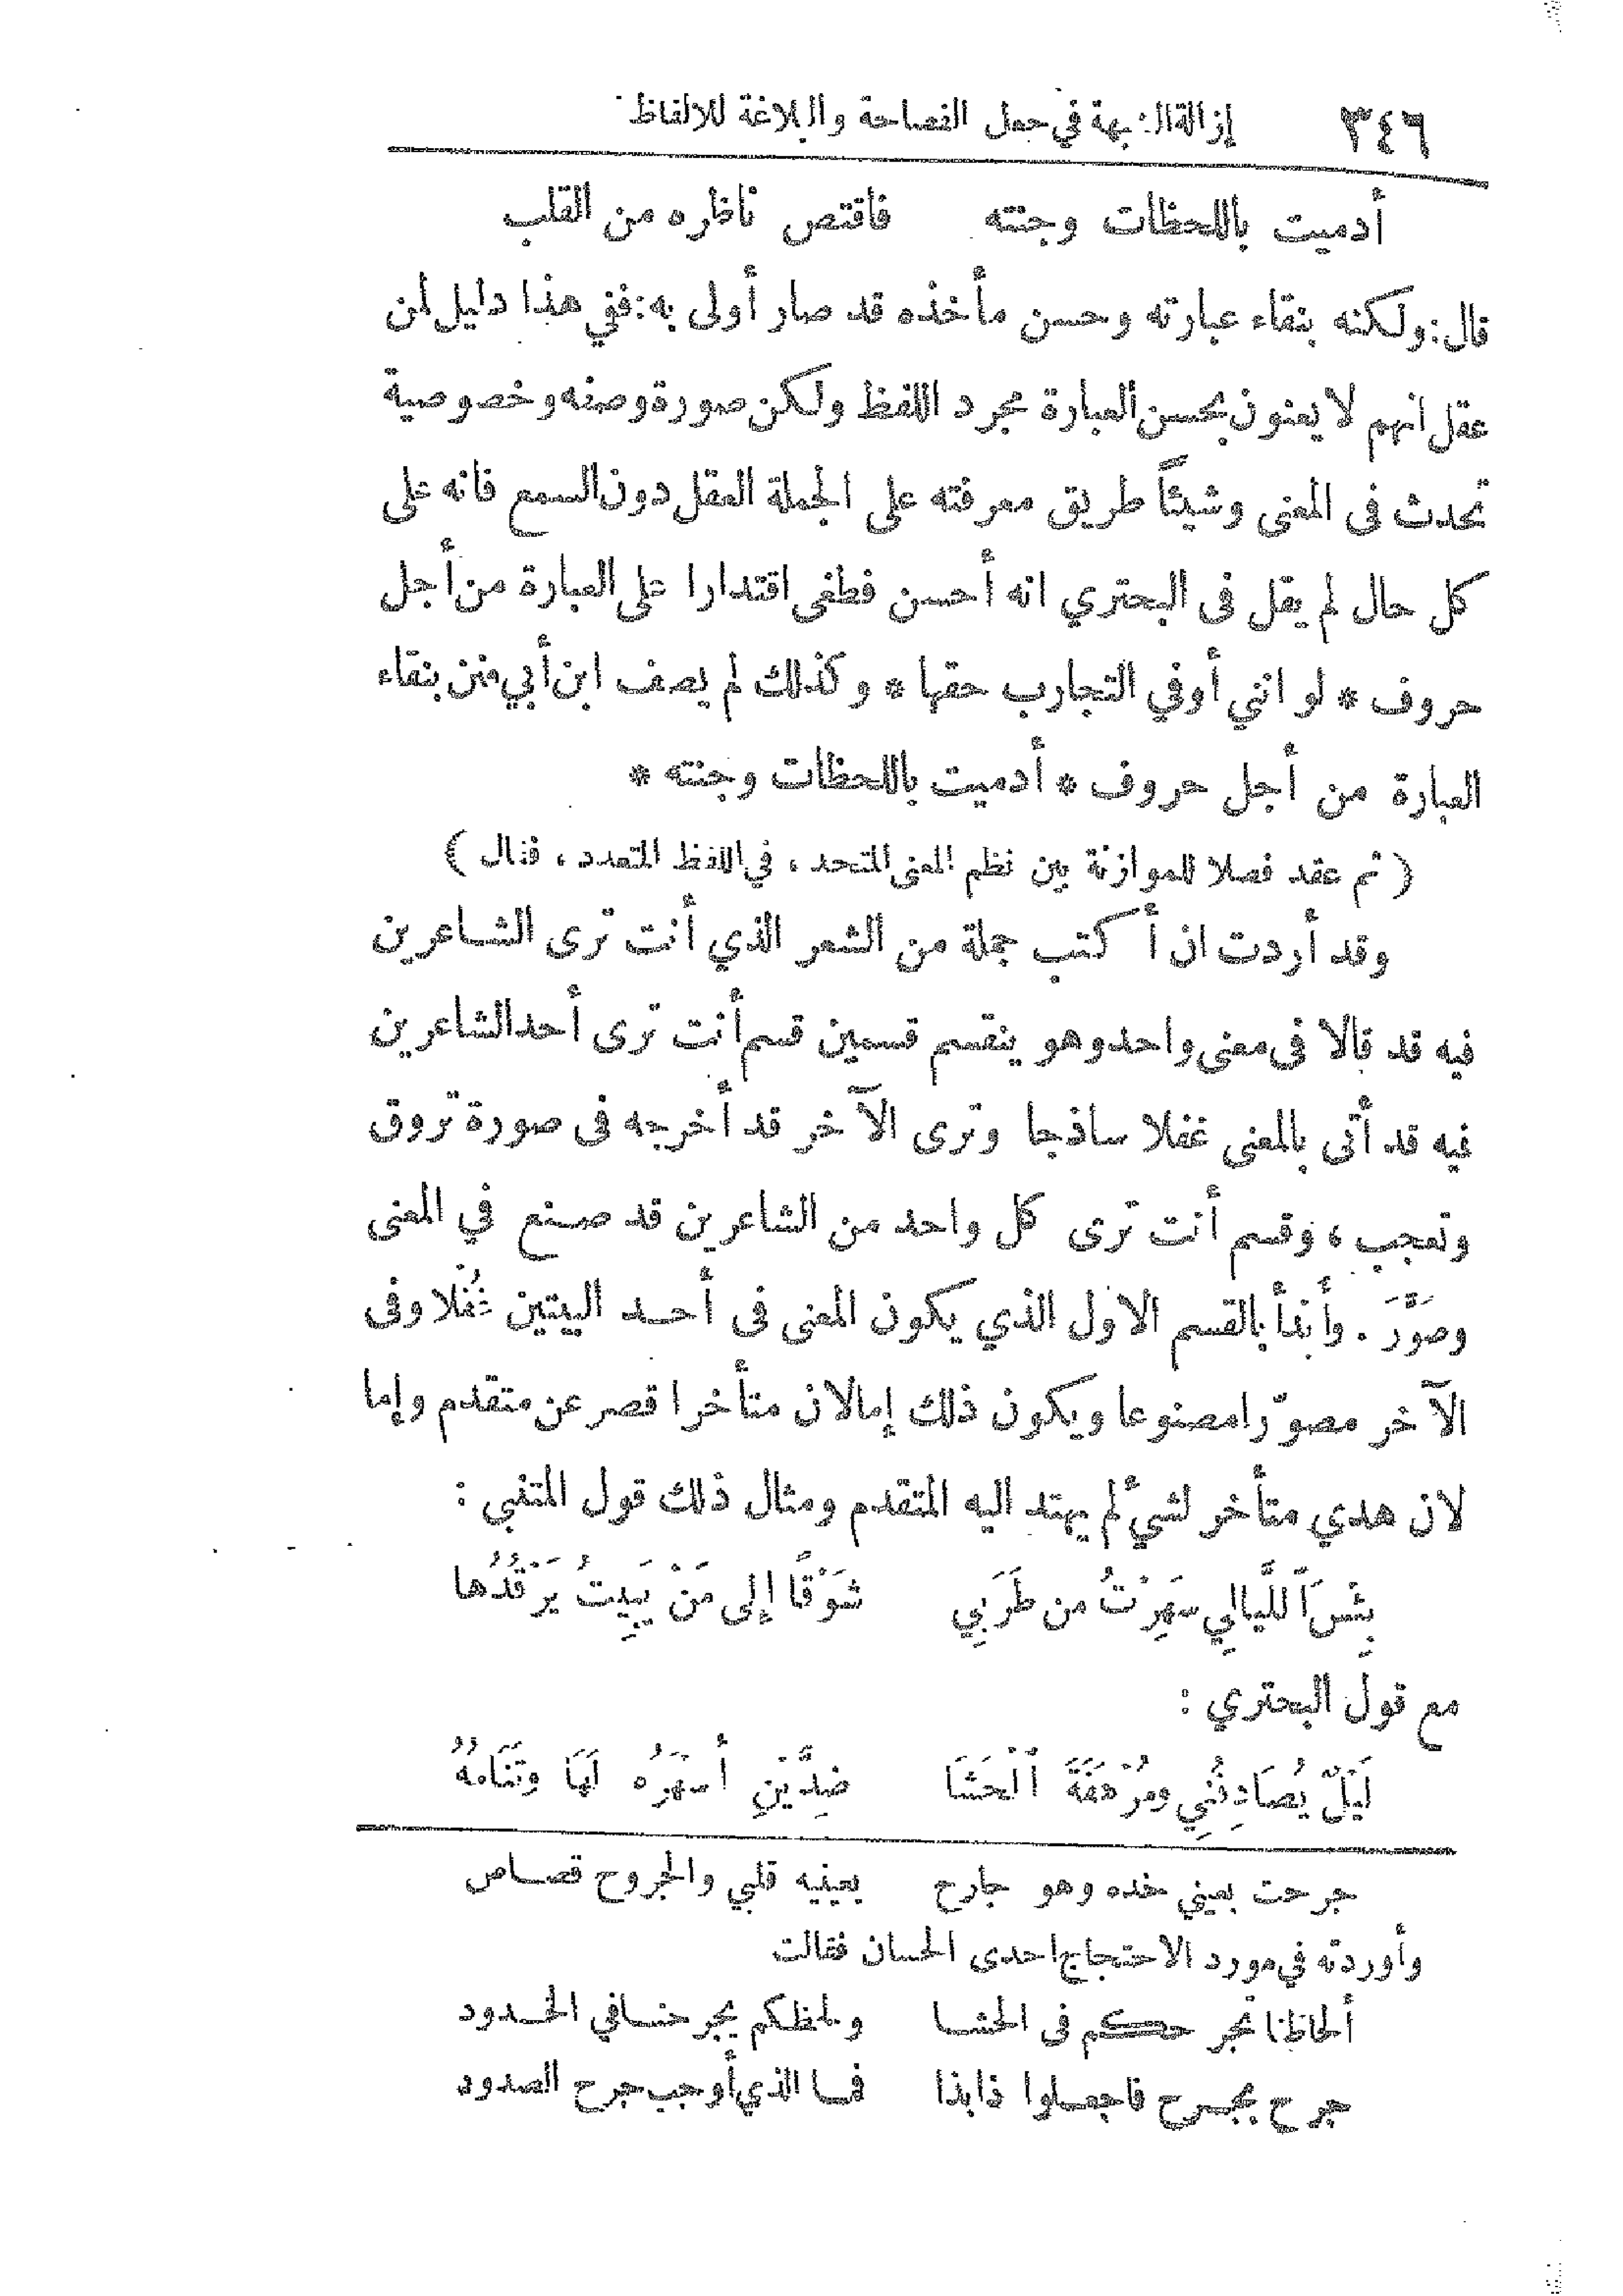 ٣٤٦ إزالة الشبهة في جعل الفصاحة والبلاغة للالفاظ
أدميت باللحظات وجنته فاقتص ناظره من القلب
قال: ولكنه بنقاء عبارته وحسن مأخذه قد صار أولى به: ففي هذا دليل لمن
عقل انهم لا يعنون بحسن العبارة مجرد اللفظ ولكن صورة وصفه وخصوصية
تحدث فى المعنى وشيئاً طريق معرفته على الجملة العقل دون السمع فانه على
كل حال لم يقل فى البحتري انه أحسن فطغى اقتدارا على العبارة من أجل
حروف * لو انني أوفي التجارب حقها * وكذلك لم يصف ابن أبي فنن بنقاء
العبارة من أجل حروف * أدميت باللحظات وجنته *
( ثم عقد فصلا للموازنة بين نظم المعنى المتحد ، في اللفظ المتعدد ، فقال )
وقد أردت ان أكتب جملة من الشعر الذي أنت ترى الشاعرين
فيه قد قالا فى معنى واحد وهو ينقسم قسمين قسم أنت ترى أحد الشاعرين
فيه قد أتى بالمعنى غفلا ساذجا وترى الآخر قد أخرجه فى صورة تروق
وتعجب ، وقسم أنت ترى كل واحد من الشاعرين قد صنع في المعنى
وصَوَّرَ . وأبدأ بالقسم الاول الذي يكون المعنى فى أحد البيتين غُفْلا وفى
الآخر مصوّرا مصنوعا ويكون ذلك إما لان متأخرا قصر عن متقدم وإما
لان هدي متأخر لشئ لم يهتد اليه المتقدم ومثال ذلك قول المتنبي :
بِئْسَ ٱللَّيالِي سَهِرْتُ من طَرَبِي شَوْقًا إلى مَنْ يَبِيتُ يَرْقُدُها
مع قول البحتري :
لَيْلٌ يُصَادِفُنِي ومُرْهَفَةَ ٱلْحَشَا ضِدَّيْنِ أَسْهَرُه لَهَا وتَنَامُهُ
جرحت بعيني خده وهو جارح بعينيه قلبي والجروح قصاص
وأوردته في مورد الاحتجاج احدى الحسان فقالت
ألحاظنا تجرحكم فى الحشا ولحظكم يجرحنا في الخدود
جرح بجرح فاجعلوا ذا بذا فما الذي أوجب جرح الصدود